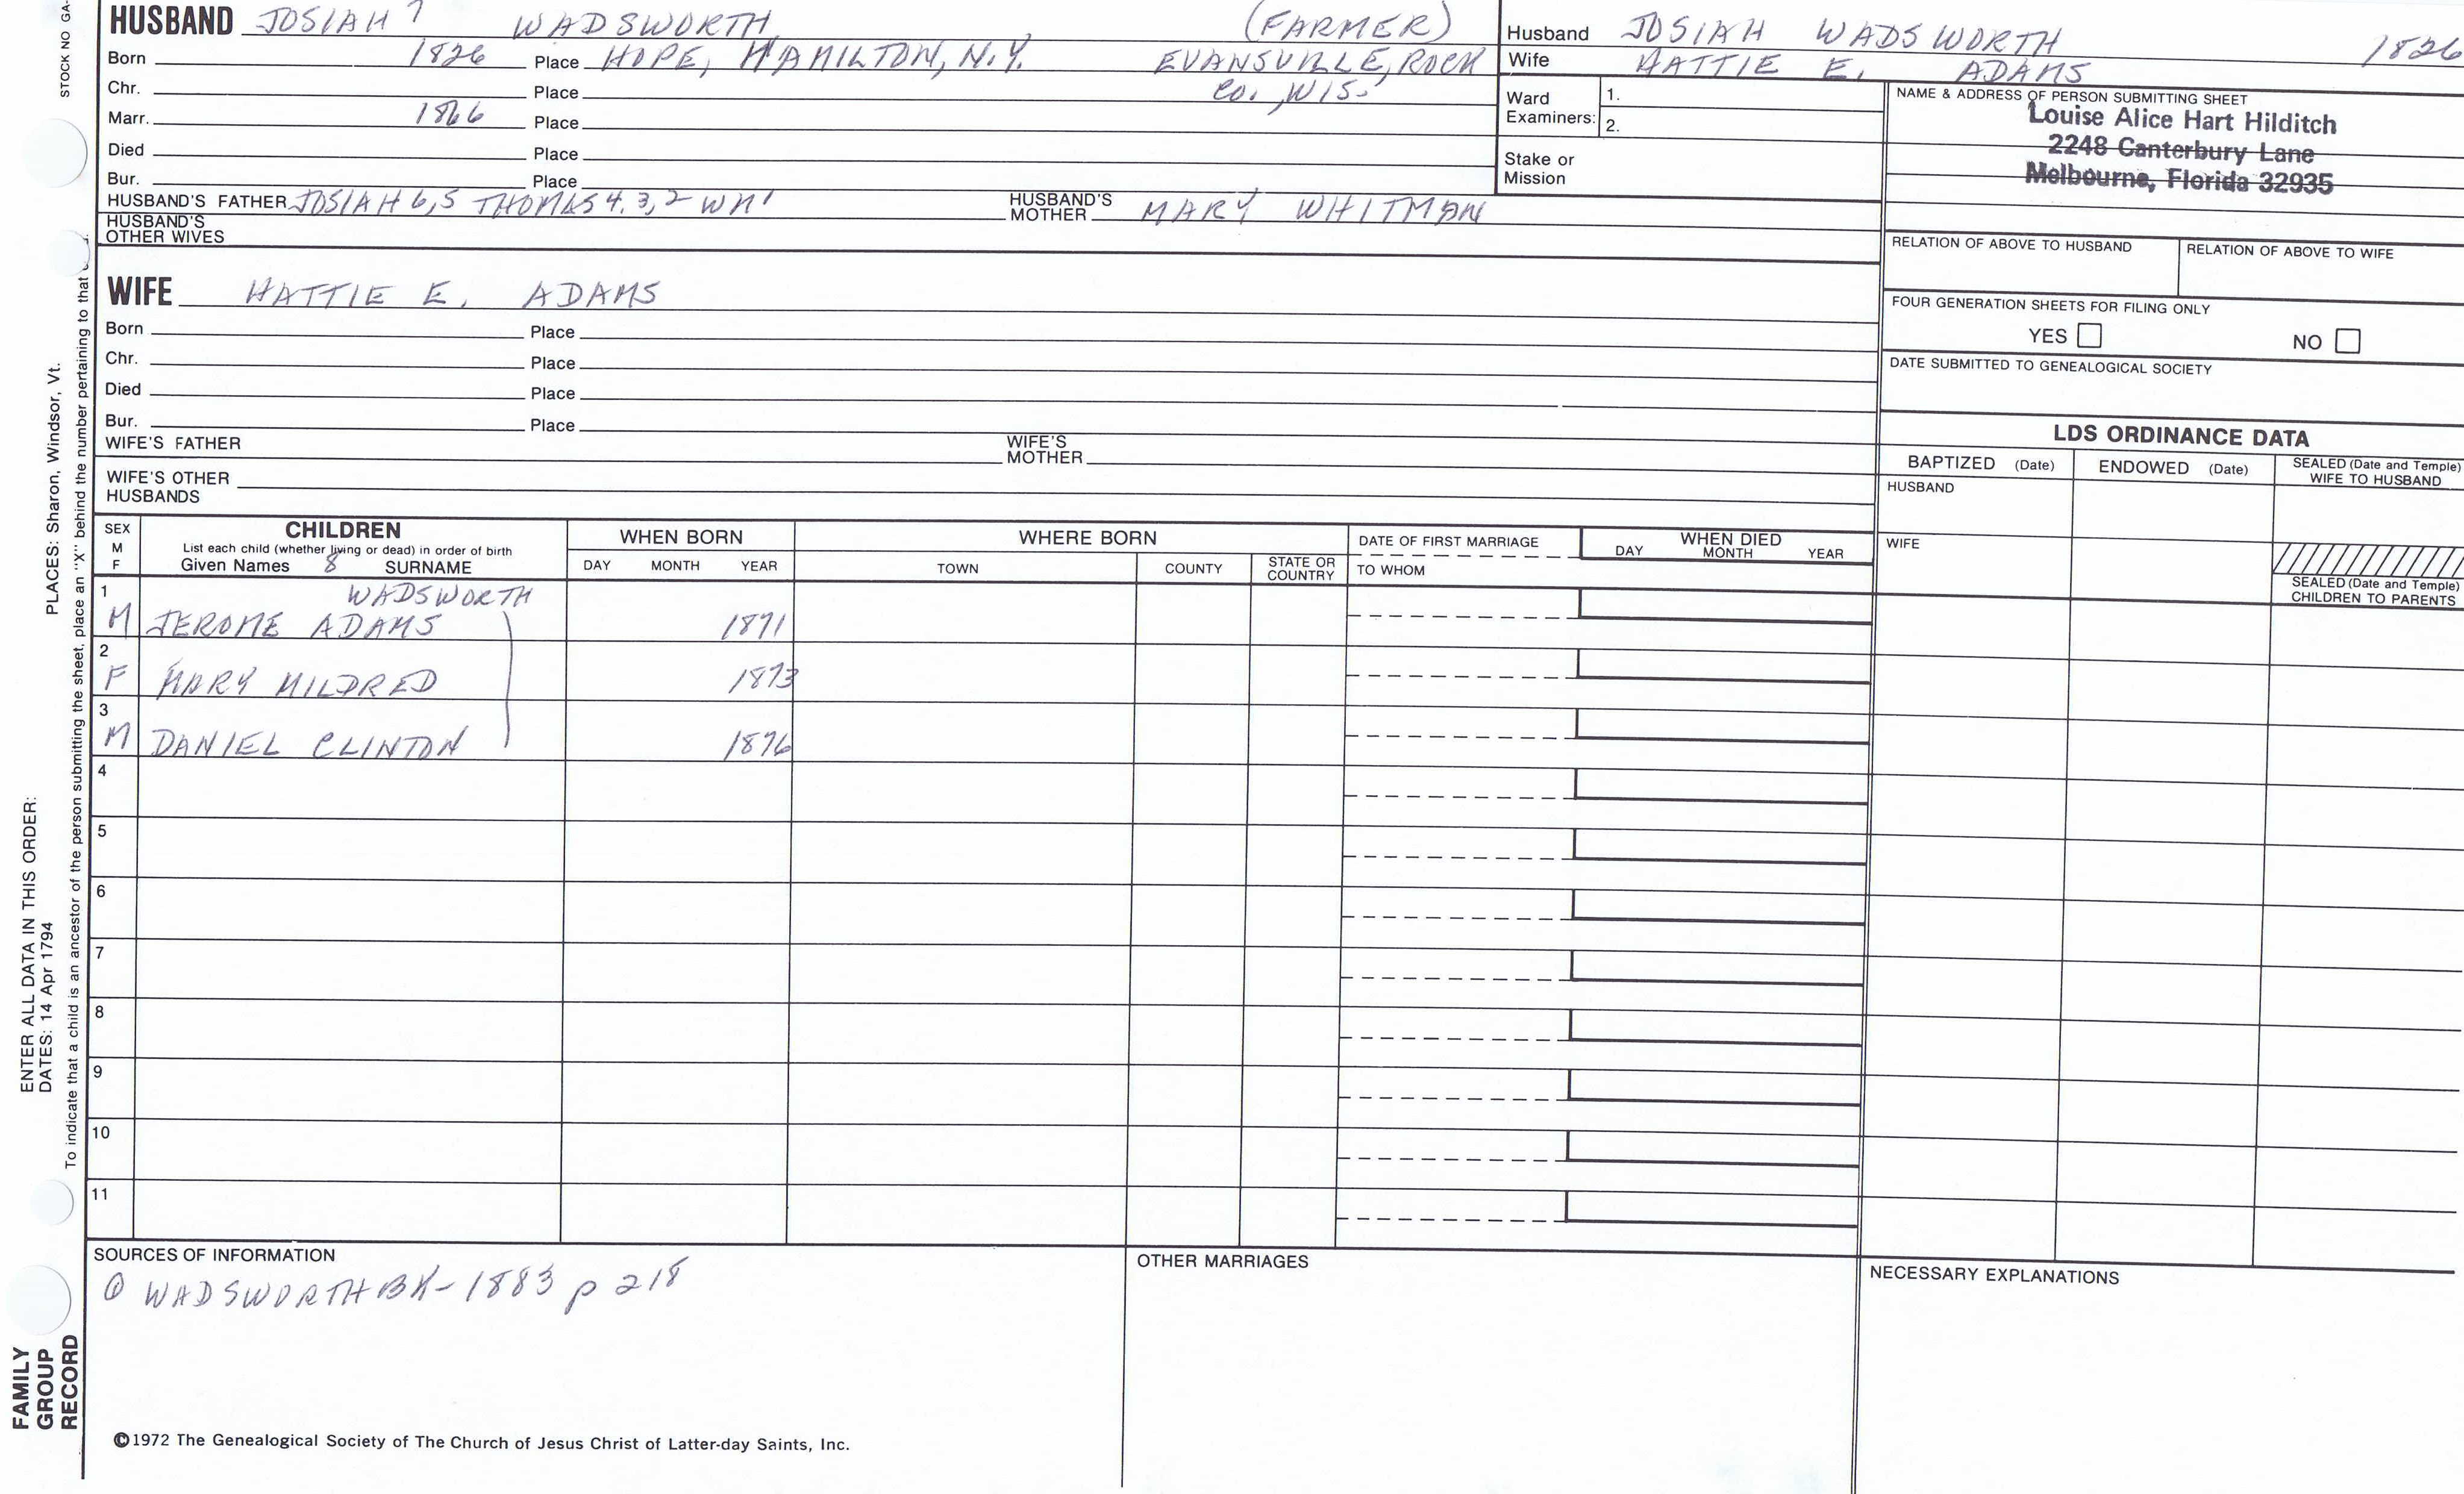 STOCK NO GA-
PLACES: Sharon, Windsor, Vt.
ENTER ALL DATA IN THIS ORDER:
DATES: 14 Apr 1794
To indicate that a child is an ancestor of the person submitting the sheet, place an "X" behind the number pertaining to that
FAMILY
GROUP
RECORD
HUSBAND JOSIAH 7 WADSWORTH (FARMER)
Born 1826 Place HOPE, HAMILTON, N.Y. EVANSVILLE, ROCK
Chr. Place CO., WIS.
Marr. 1866 Place
Died Place
Bur. Place
HUSBAND'S FATHER JOSIAH 6,5 THOMAS 4,3,2 WM' HUSBAND'S MOTHER MARY WHITMAN
HUSBAND'S
OTHER WIVES
Husband JOSIAH WADSWORTH 1826
Wife HATTIE E. ADAMS
Ward
Examiners: 1.
2.
Stake or
Mission
NAME & ADDRESS OF PERSON SUBMITTING SHEET
Louise Alice Hart Hilditch
2248 Canterbury Lane
Melbourne, Florida 32935
RELATION OF ABOVE TO HUSBAND RELATION OF ABOVE TO WIFE
FOUR GENERATION SHEETS FOR FILING ONLY
YES NO
DATE SUBMITTED TO GENEALOGICAL SOCIETY
WIFE HATTIE E. ADAMS
Born Place
Chr. Place
Died Place
Bur. Place
WIFE'S FATHER WIFE'S MOTHER
WIFE'S OTHER
HUSBANDS
LDS ORDINANCE DATA
BAPTIZED (Date) ENDOWED (Date) SEALED (Date and Temple)
WIFE TO HUSBAND
HUSBAND
WIFE
SEALED (Date and Temple)
CHILDREN TO PARENTS
SEX
M
F
CHILDREN
List each child (whether living or dead) in order of birth
Given Names 8 SURNAME
WHEN BORN
DAY MONTH YEAR
WHERE BORN
TOWN COUNTY STATE OR
COUNTRY
DATE OF FIRST MARRIAGE
TO WHOM
WHEN DIED
DAY MONTH YEAR
1 WADSWORTH
M JEROME ADAMS 1871
2
F MARY MILDRED 1873
3
M DANIEL CLINTON 1876
4
5
6
7
8
9
10
11
SOURCES OF INFORMATION
① WADSWORTH BK - 1883 p 218
OTHER MARRIAGES
NECESSARY EXPLANATIONS
©1972 The Genealogical Society of The Church of Jesus Christ of Latter-day Saints, Inc.